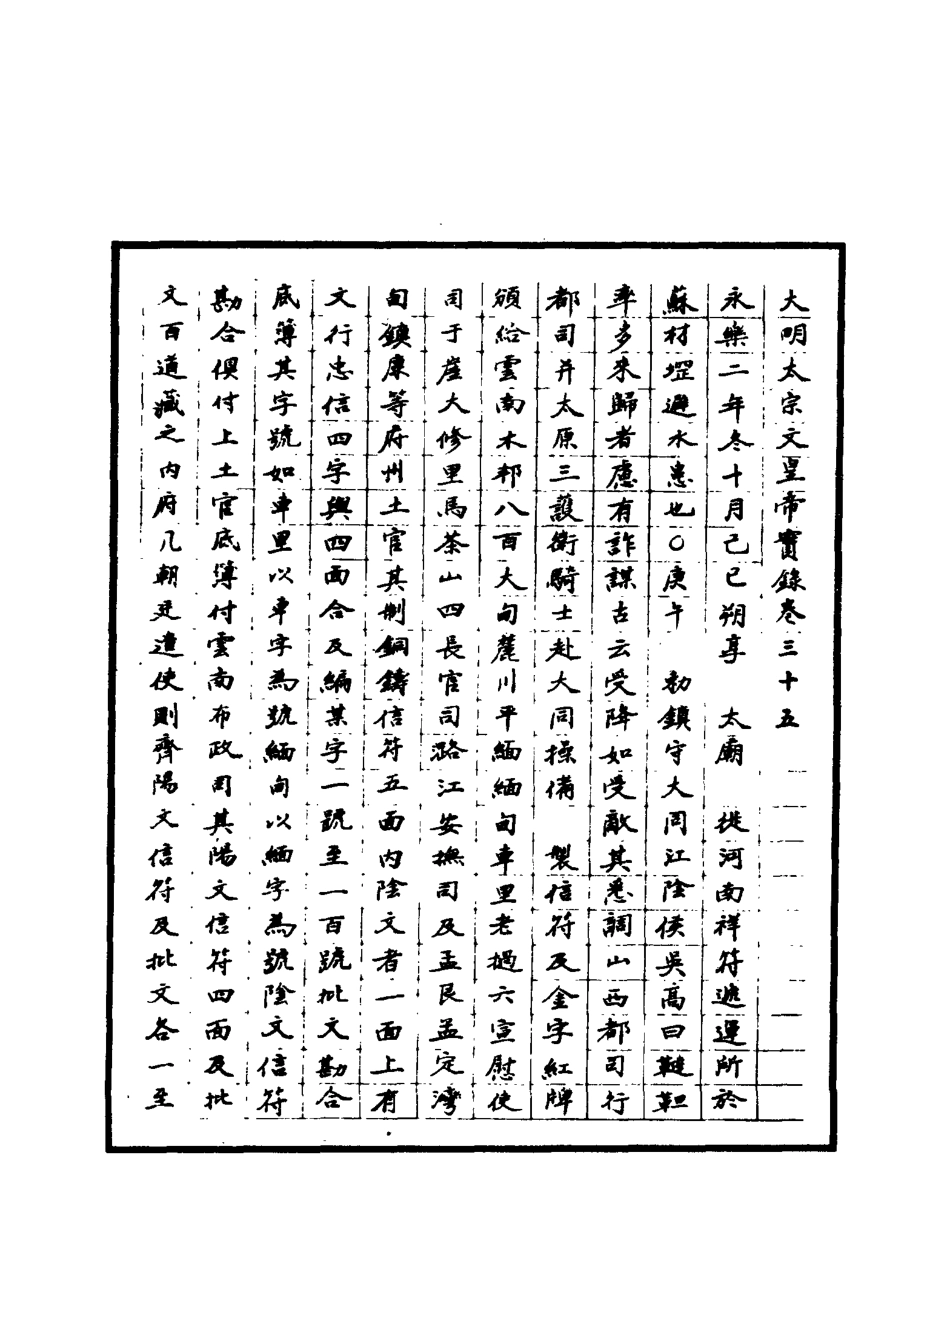 大明太宗文皇帝實錄卷三十五
永樂二年冬十月己巳朔享　太廟　徙河南祥符遞運所於
蘇村堽避水患也○庚午　勑鎮守大同江陰侯吳高曰韃靼
率多來歸者慮有詐謀古云受降如受敵其悉調山西都司行
都司并太原三護衛騎士赴大同操備　製信符及金字紅牌
頒給雲南木邦八百大甸麓川平緬緬甸車里老撾六宣慰使
司于崖大修里馬茶山四長官司潞江安撫司及孟艮孟定灣
甸鎮康等府州土官其制銅鑄信符五面內陰文者一面上有
文行忠信四字與四面合及編某字一號至一百號批文勘合
底簿其字號如車里以車字為號緬甸以緬字為號陰文信符
勘合俱付上土官底簿付雲南布政司其陽文信符四面及批
文百道藏之內府凡朝廷遣使則齎陽文信符及批文各一至